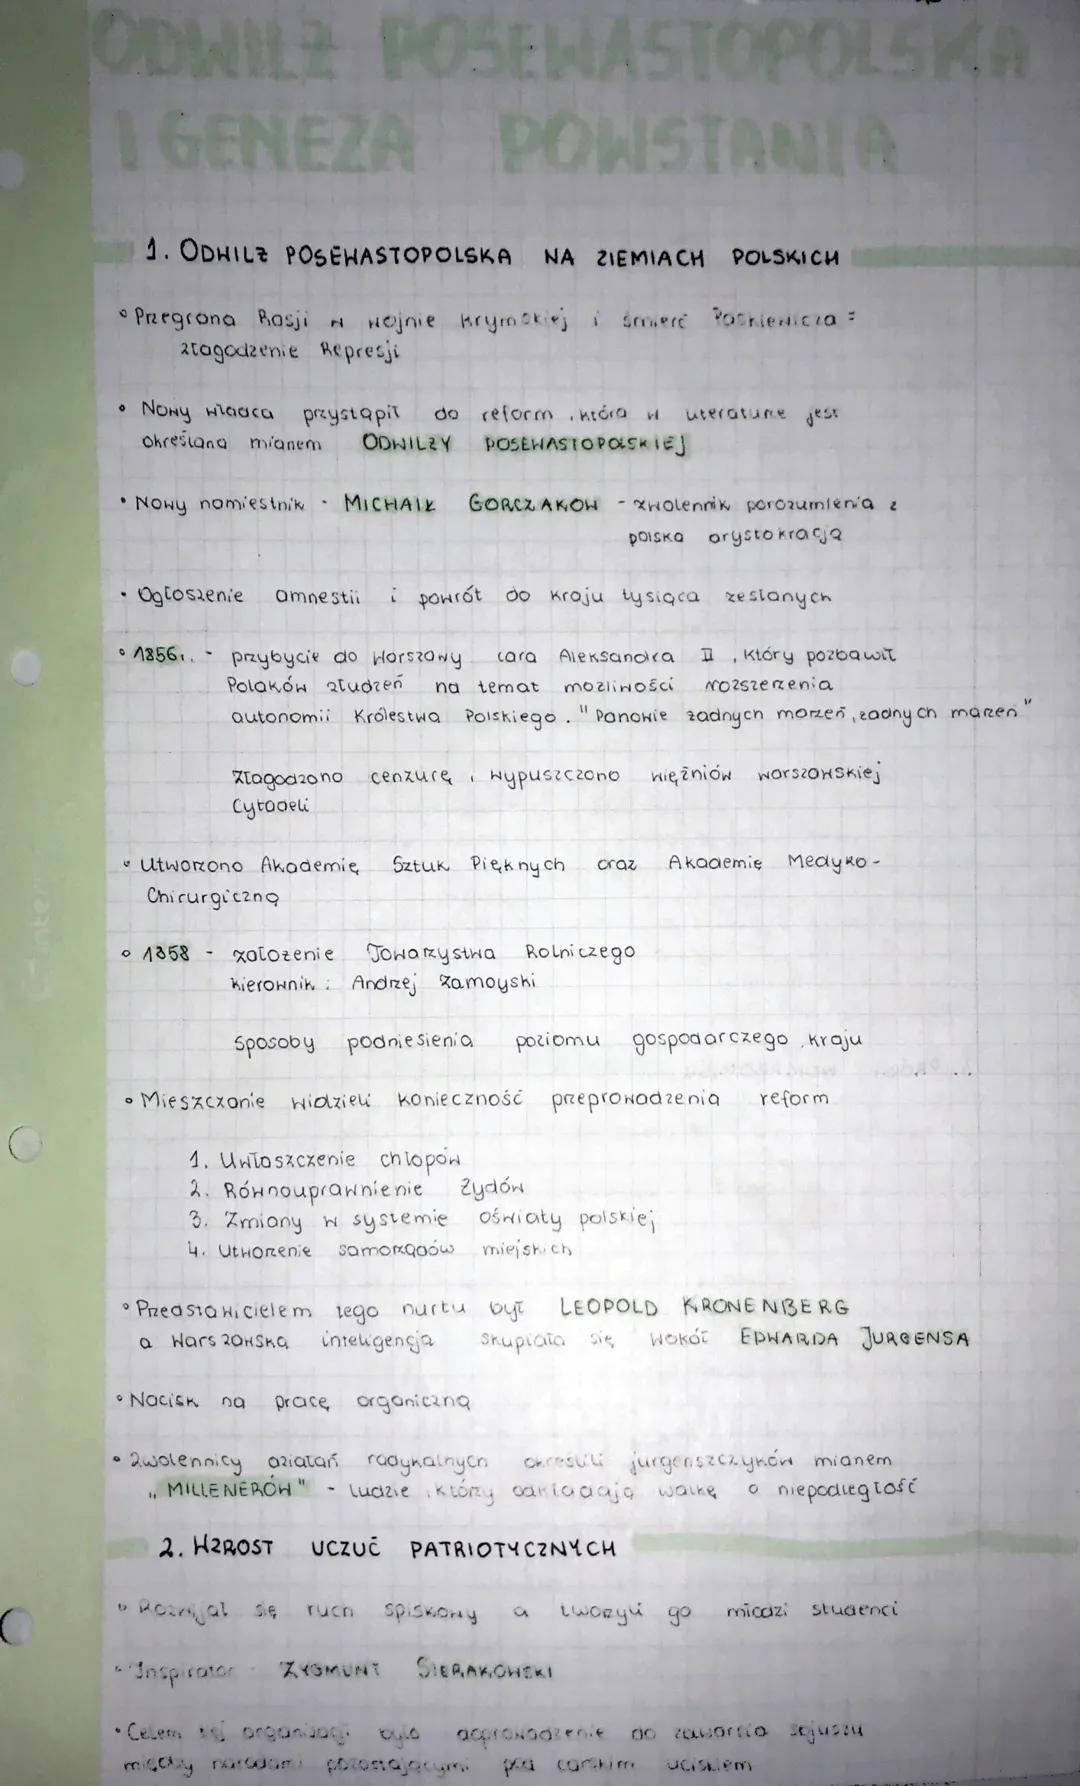 ODWILŻ POSEWASTOPOLSKA
I GENEZA POWSTANIA
1. ODWILŻ POSEWASTOPOLSKA NA ZIEMIACH POLSKICH
• Przegrana Rosji w wojnie Krymskiej i śmierć Paskiewicza =
złagodzenie Represji
• Nowy władca przystąpił do reform, która w literaturze jest
określana mianem ODWILŻY POSEWASTOPOLSKIEJ
• Nowy namiestnik - MICHAIŁ GORCZAKOW - zwolennik porozumienia z
polską arystokracją
• Ogłoszenie amnestii i powrót do kraju tysiąca zesłanych
• 1856r. - przybycie do Warszawy cara Aleksandra II, który pozbawił
Polaków złudzeń na temat możliwości rozszerzenia
autonomii Królestwa Polskiego. "Panowie żadnych marzeń, żadnych marzeń"
Złagodzono cenzurę, wypuszczono więźniów warszawskiej
Cytadeli
• Utworzono Akademię Sztuk Pięknych oraz Akademię Medyko-
Chirurgiczną
• 1858 - założenie Towarzystwa Rolniczego
kierownik: Andrzej Zamoyski
sposoby podniesienia poziomu gospodarczego kraju
• Mieszczanie widzieli konieczność przeprowadzenia reform
1. Uwłaszczenie chłopów
2. Równouprawnienie Żydów
3. Zmiany w systemie oświaty polskiej
4. Utworzenie samorządów miejskich
• Przedstawicielem tego nurtu był LEOPOLD KRONENBERG
a Warszawska inteligencja skupiała się wokół EDWARDA JURGENSA
• Nacisk na pracę organiczną
• Zwolennicy działań radykalnych określili jurgenszczyków mianem
„MILLENERÓW" - ludzie, którzy odkładają walkę o niepodległość
2. WZROST UCZUĆ PATRIOTYCZNYCH
• Rozwijał się ruch spiskowy a tworzyli go młodzi studenci
• Inspirator - ZYGMUNT SIERAKOWSKI
• Celem tej organizacji było doprowadzenie do zawarcia sojuszu
między narodami pozostającymi pod carskim uciskiem